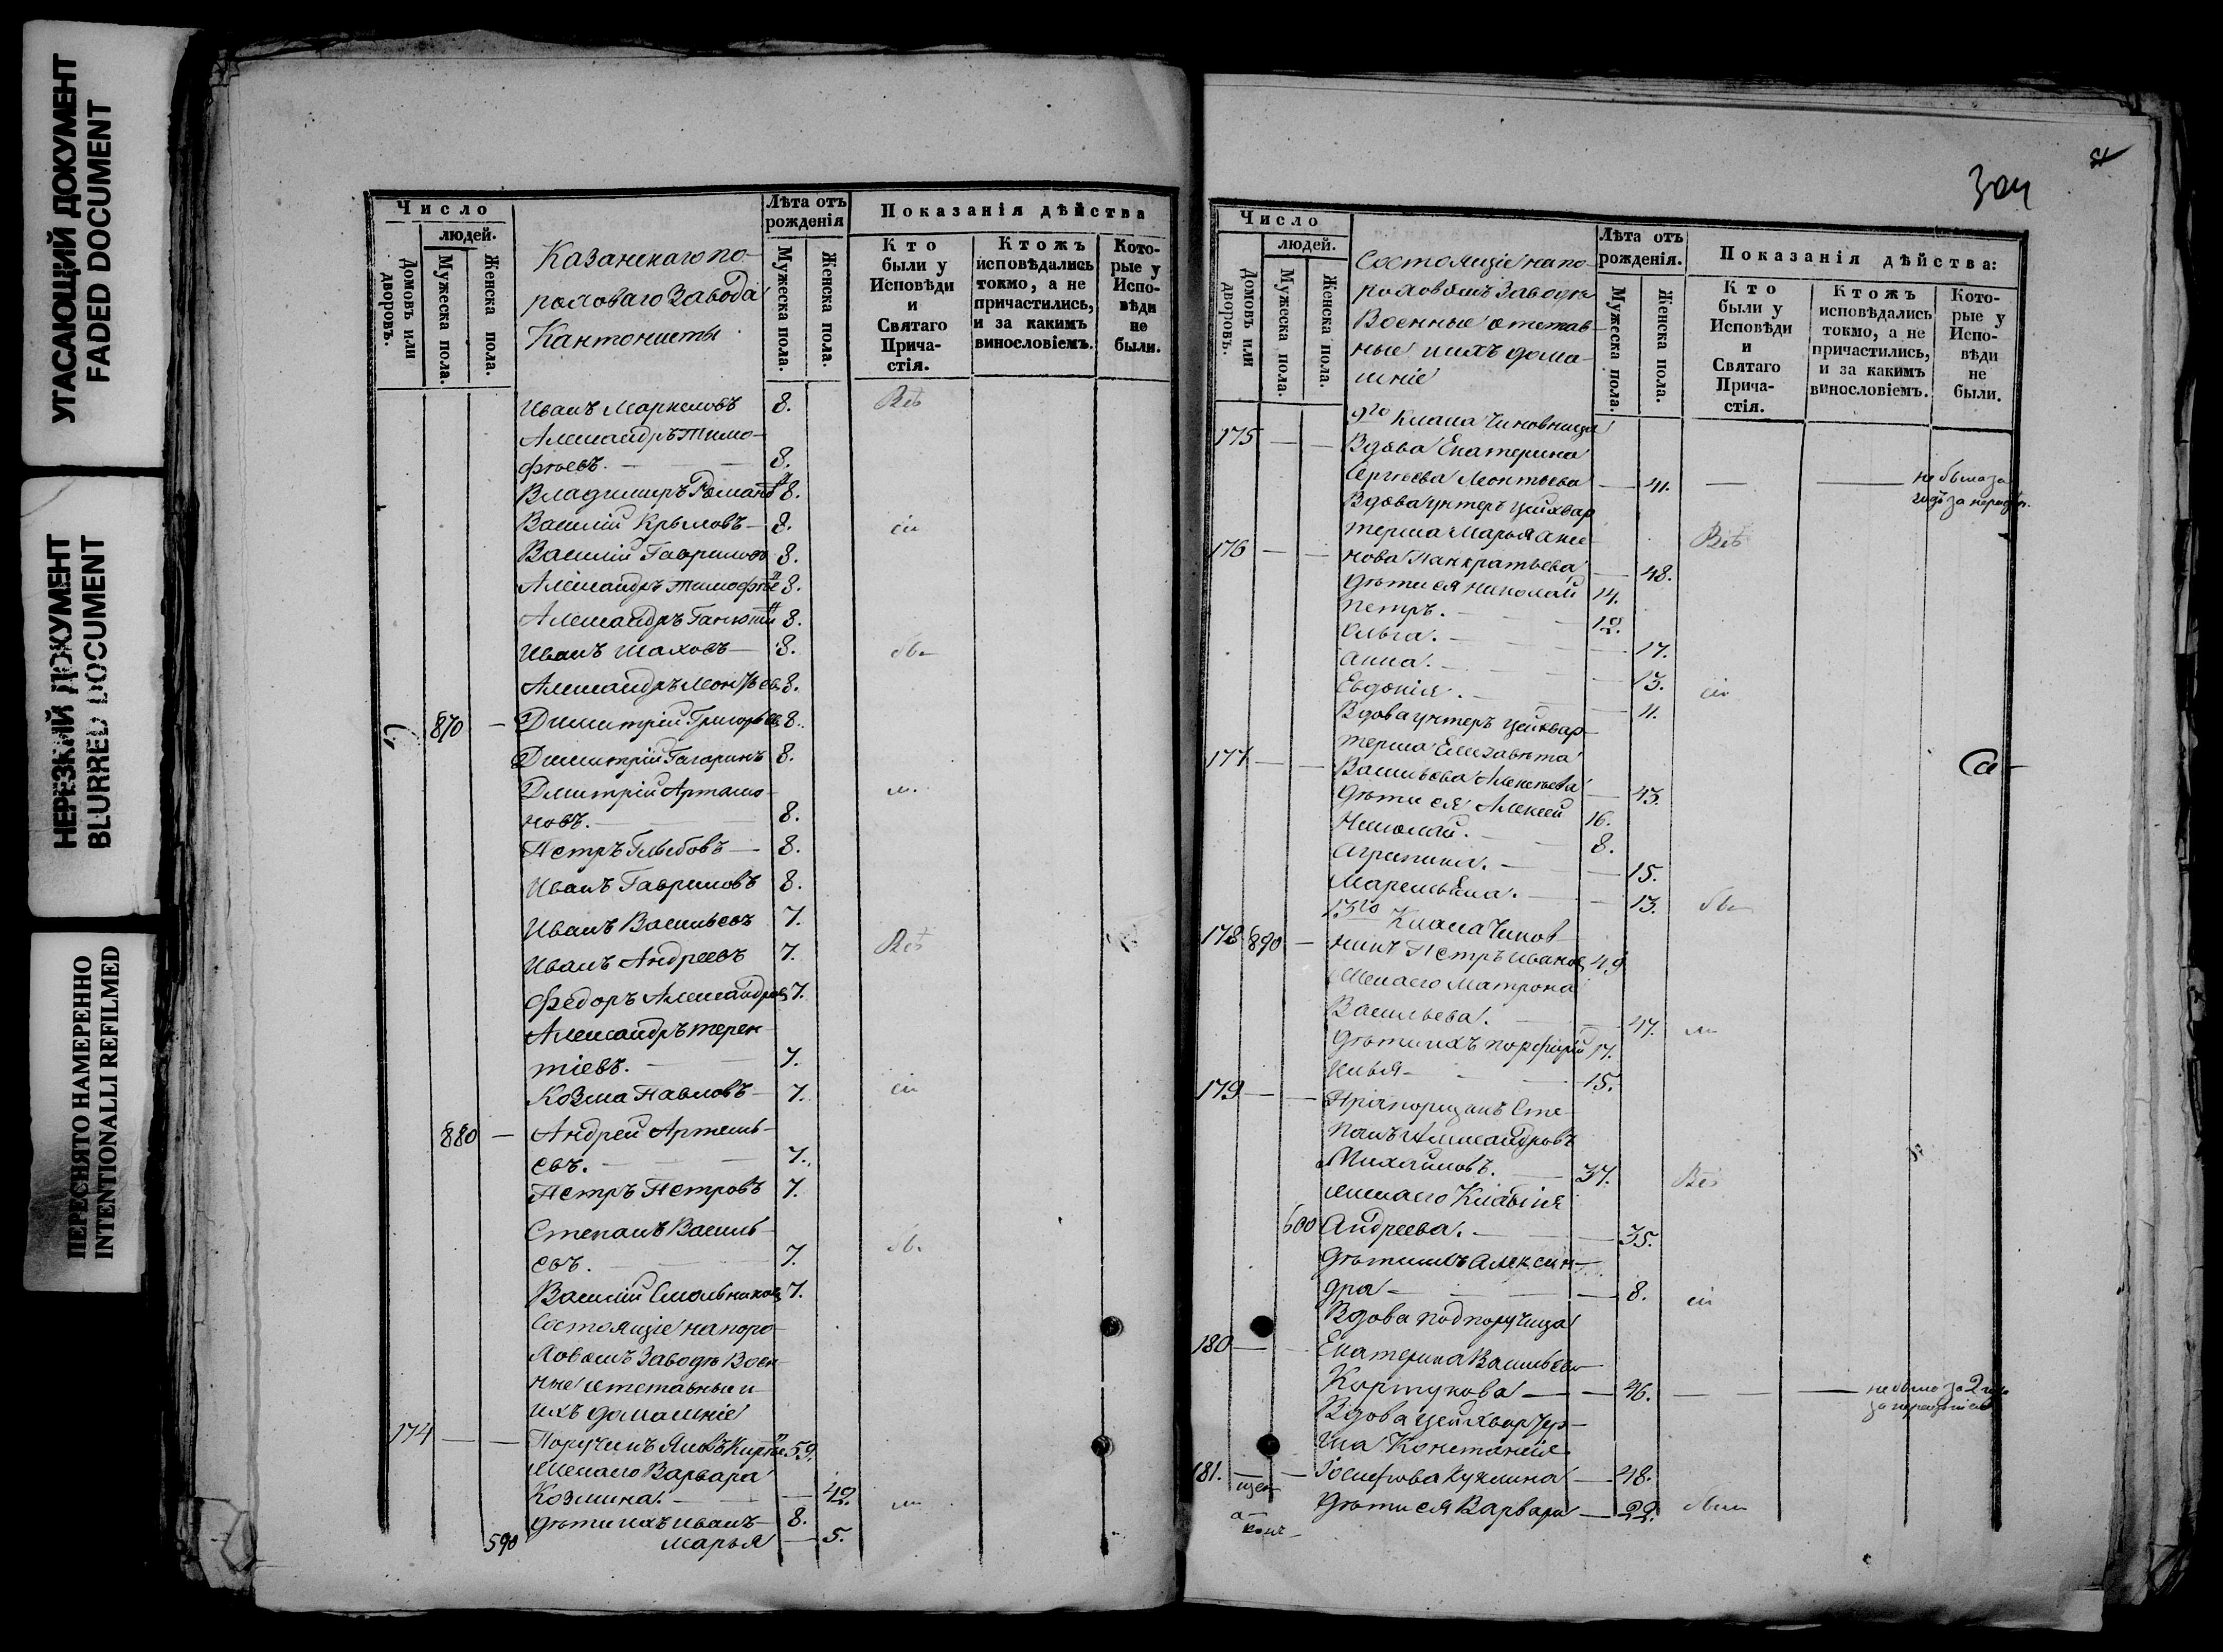 УГАСАЮЩИЙ ДОКУМЕНТ
FADED DOCUMENT
НЕРЕЗКИЙ ДОКУМЕНТ
BLURRED DOCUMENT
ПЕРЕСНЯТО НАМЕРЕННО
INTENTIONALLI REFILMED
Число
людей.
Домовъ или дворовъ.
Мужеска пола.
Женска пола.
Казанскаго по-
роховаго Завода
Кантонисты
Лѣта отъ рожденія
Мужеска пола.
Женска пола.
Показанія дѣйства
Кто были у Исповѣди и Святаго Прича-стія.
Ктожъ исповѣдались токмо, а не причастились, и за какимъ винословіемъ.
Кото-рые у Испо-вѣди не были.
Иванъ Маркеловъ 8. Всѣ
Александръ Тимо-
фѣевъ. — 8.
Владимиръ Романъ 8.
Василій Крыловъ — 8. сіи
Василій Гавриловъ 8.
Александръ Тимофѣе 8.
Александръ 8.
Иванъ Шаховъ — 8. бы
Александръ Леонтьевъ 8.
870 — Димитрій Григорьевъ 8.
Димитрій Гагаринъ 8.
Дмитрій Артамо-
новъ. — 8. ли
Петръ Глѣбовъ — 8.
Иванъ Гавриловъ 8.
Иванъ Васильевъ 7.
Иванъ Андреевъ 7. Всѣ
Федоръ Александровъ 7.
Александръ Терен-
тіевъ. — 7.
Козма Павловъ — 7. сіи
880 — Андрей Артемь-
евъ. — 7.
Петръ Петровъ 7.
Степанъ Василь-
евъ. — 7. бы
Василій Смольниковъ 7.
Состоящіе на поро-
ховомъ Заводѣ Воен-
ные отставные и
ихъ домашніе
174 — — Поручикъ Яковъ 59.
Жена его Варвара
Козмина. — 42. ли
дѣти ихъ Иванъ — 8.
590 Марья — 5.
304
Число
людей.
Домовъ или дворовъ.
Мужеска пола.
Женска пола.
Состоящіе на по-
роховомъ Заводѣ
Военные отстав-
ные и ихъ дома-
шніе
Лѣта отъ рожденія.
Мужеска пола.
Женска пола.
Показанія дѣйства:
Кто были у Исповѣди и Святаго Прича-стія.
Ктожъ исповѣдались токмо, а не причастились, и за какимъ винословіемъ.
Кото-рые у Испо-вѣди не были.
9го Класа Чиновница
175 — — Вдова Екатерина
Сергѣева Леонтьева — 41. — — не была за
годъ за
Вдова унтеръ цейхвар
терша Марья 
176 — — нова Панкратьева — 48. Всѣ
дѣти ея Николай 14.
Петръ. — 12.
Ольга. — 17.
Анна. — 13. сіи
Евдокія. — 11.
Вдова унтеръ цейхвар-
177 — — терша Елизавета
Васильева Алексѣева — 43.
дѣти ея Алексей 16.
Николай. — 8.
Агрипина. — 15.
13. бы
13го Класа Чинов-
178 890 — никъ Петръ Ивановъ 49
Жена его Матрона
Васильева. — 47. ли
дѣти ихъ Порфирій 17.
Илья — 15.
179 — — Прапорщикъ Сте-
панъ Александровъ
Михайловъ. — 37. Всѣ
жена его Клавдія
600 Андреева. — 35.
дѣти ихъ Алексан-
дра — 8. сіи
Вдова подпоручица
180 — Екатерина Васильева
— 46. — — не была за 2 года
Вдова цейхвартер-
ша Констансія
181. — — Іосифова Кузмина — 48.
дѣти ея Варвара — 22. были